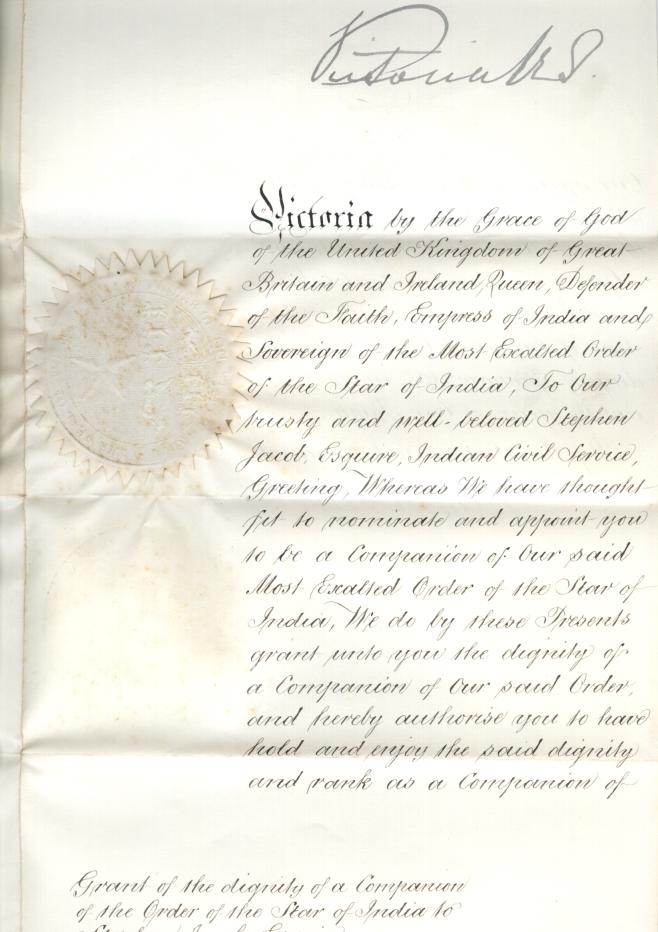 Victoria R I.
Victoria by the Grace of God
of the United Kingdom of Great
Britain and Ireland, Queen, Defender
of the Faith, Empress of India and
Sovereign of the Most Exalted Order
of the Star of India, To Our
trusty and well-beloved Stephen
Jacob, Esquire, Indian Civil Service,
Greeting, Whereas We have thought
fit to nominate and appoint you
to be a Companion of Our said
Most Exalted Order of the Star of
India, We do by these Presents
grant unto you the dignity of
a Companion of Our said Order,
and hereby authorise you to have
hold and enjoy the said dignity
and rank as a Companion of
Grant of the dignity of a Companion
of the Order of the Star of India to